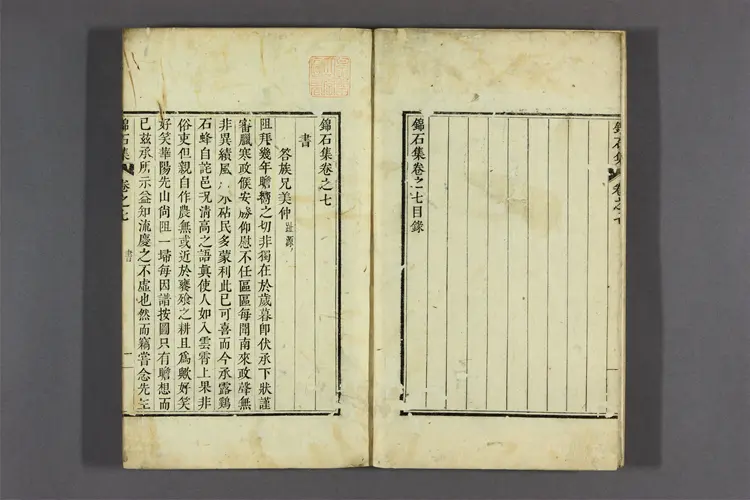 錦石集卷之七目錄
錦石集卷之七
書
答族兄美仲趾源
阻拜幾年瞻嚮之切非獨在於歲暮卽伏承下狀謹
審臘寒政候安勝仰慰不任區區每聞南來政聲無
非異績風 永砧民多蒙利此已可喜而今承露鷄
石蜂自詑邑況淸高之語眞使人如入雲霄上果非
俗吏但親自作農無或近於饔飧之耕且爲歟好笑
好笑華陽先山尙阻一掃每因譜按圖只有瞻想而
已茲承所示益知流慶之不虛也然而竊嘗念先
錦石集
卷之七
書
一